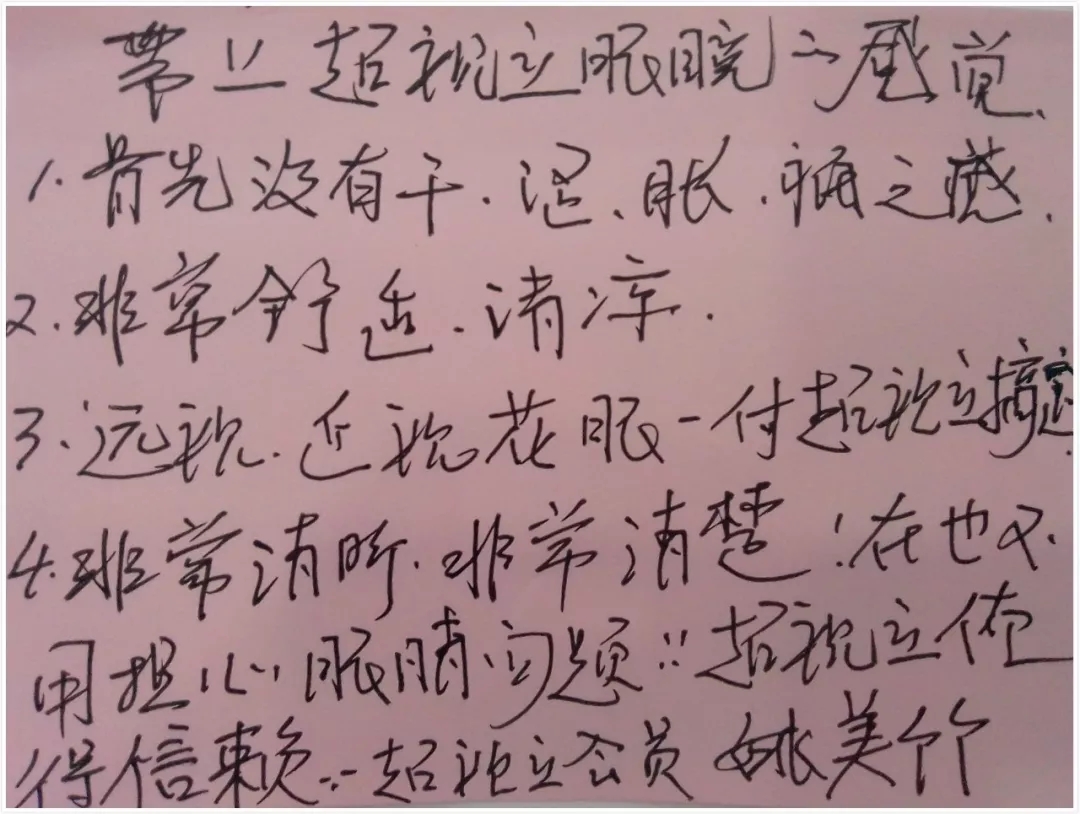 带上超视立眼睆之感觉.
1.首先没有干.涩、胀.痛之感.
2.非常舒适.清凉.
3.远视.近视花眼一付超视立搞定
4.非常清晰.非常清楚!在也不.
用担心眼睛问题::超视立值
得信赖::超视立会员 姚美竹